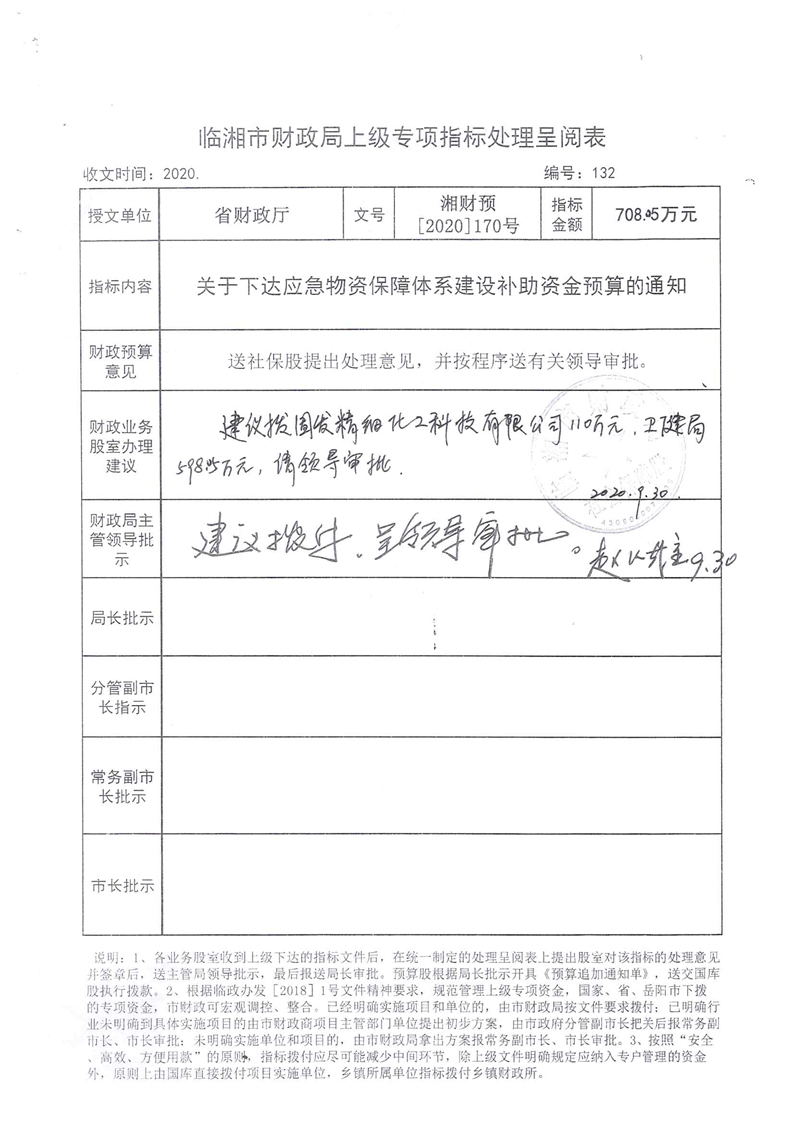 临湘市财政局上级专项指标处理呈阅表
收文时间：2020.
编号：132
授文单位
省财政厅
文号
湘财预
[2020]170号
指标
金额
708.05万元
指标内容
关于下达应急物资保障体系建设补助资金预算的通知
财政预算
意见
送社保股提出处理意见，并按程序送有关领导审批。
财政业务
股室办理
建议
建议拨国发精细化工科技有限公司110万元，卫健局
598.05万元，请领导审批.
2020.9.30.
财政局主
管领导批
示
建议拨付，呈领导审批。
9.30
局长批示
分管副市
长指示
常务副市
长批示
市长批示
说明：1、各业务股室收到上级下达的指标文件后，在统一制定的处理呈阅表上提出股室对该指标的处理意见
并签章后，送主管局领导批示，最后报送局长审批。预算股根据局长批示开具《预算追加通知单》，送交国库
股执行拨款。2、根据临政办发［2018］1号文件精神要求，规范管理上级专项资金，国家、省、岳阳市下拨
的专项资金，市财政可宏观调控、整合。已经明确实施项目和单位的，由市财政局按文件要求拨付；已明确行
业未明确到具体实施项目的由市财政商项目主管部门单位提出初步方案，由市政府分管副市长把关后报常务副
市长、市长审批；未明确实施单位和项目的，由市财政局拿出方案报常务副市长、市长审批。3、按照“安全
、高效、方便用款”的原则，指标拨付应尽可能减少中间环节，除上级文件明确规定应纳入专户管理的资金
外，原则上由国库直接拨付项目实施单位，乡镇所属单位指标拨付乡镇财政所。